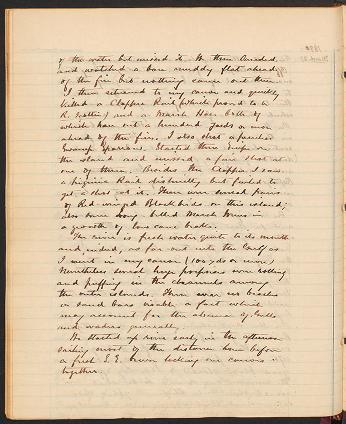 of the water but missed it. We then landed,
and watched a bare muddy flat ahead
of the fire but nothing came out there.
I then returned to my canoe and quickly
killed a Clapper Rail (which proved to be
R. Scottii) and a Marsh Hare both of
which ran out a hundred yards or more
ahead of the fire. I also shot a
Swamp Sparrow. Started three Snipe on
the island and missed a fair shot at
one of them. Besides the Clapper I saw
a Virginia Rail distinctly but failed to
get a shot at it. There were several pairs
of Red-winged Blackbirds on this island;
also some Long billed Marsh Wrens in
a growth of low cane brake.
The river is fresh water quite to its mouth
and indeed, as far out into the Gulf as
I went in my canoe (100 yds or more)
Nevertheless several huge porpoises were rolling
and puffing in the channels among
the outer islands. There were no beaches
or sand bars visible a fact which
may account for the absence of Gulls
and waders generally.
We started up river early in the afternoon
sailing most of the distance home before
a fresh S.E. breeze locking our canoes
together.